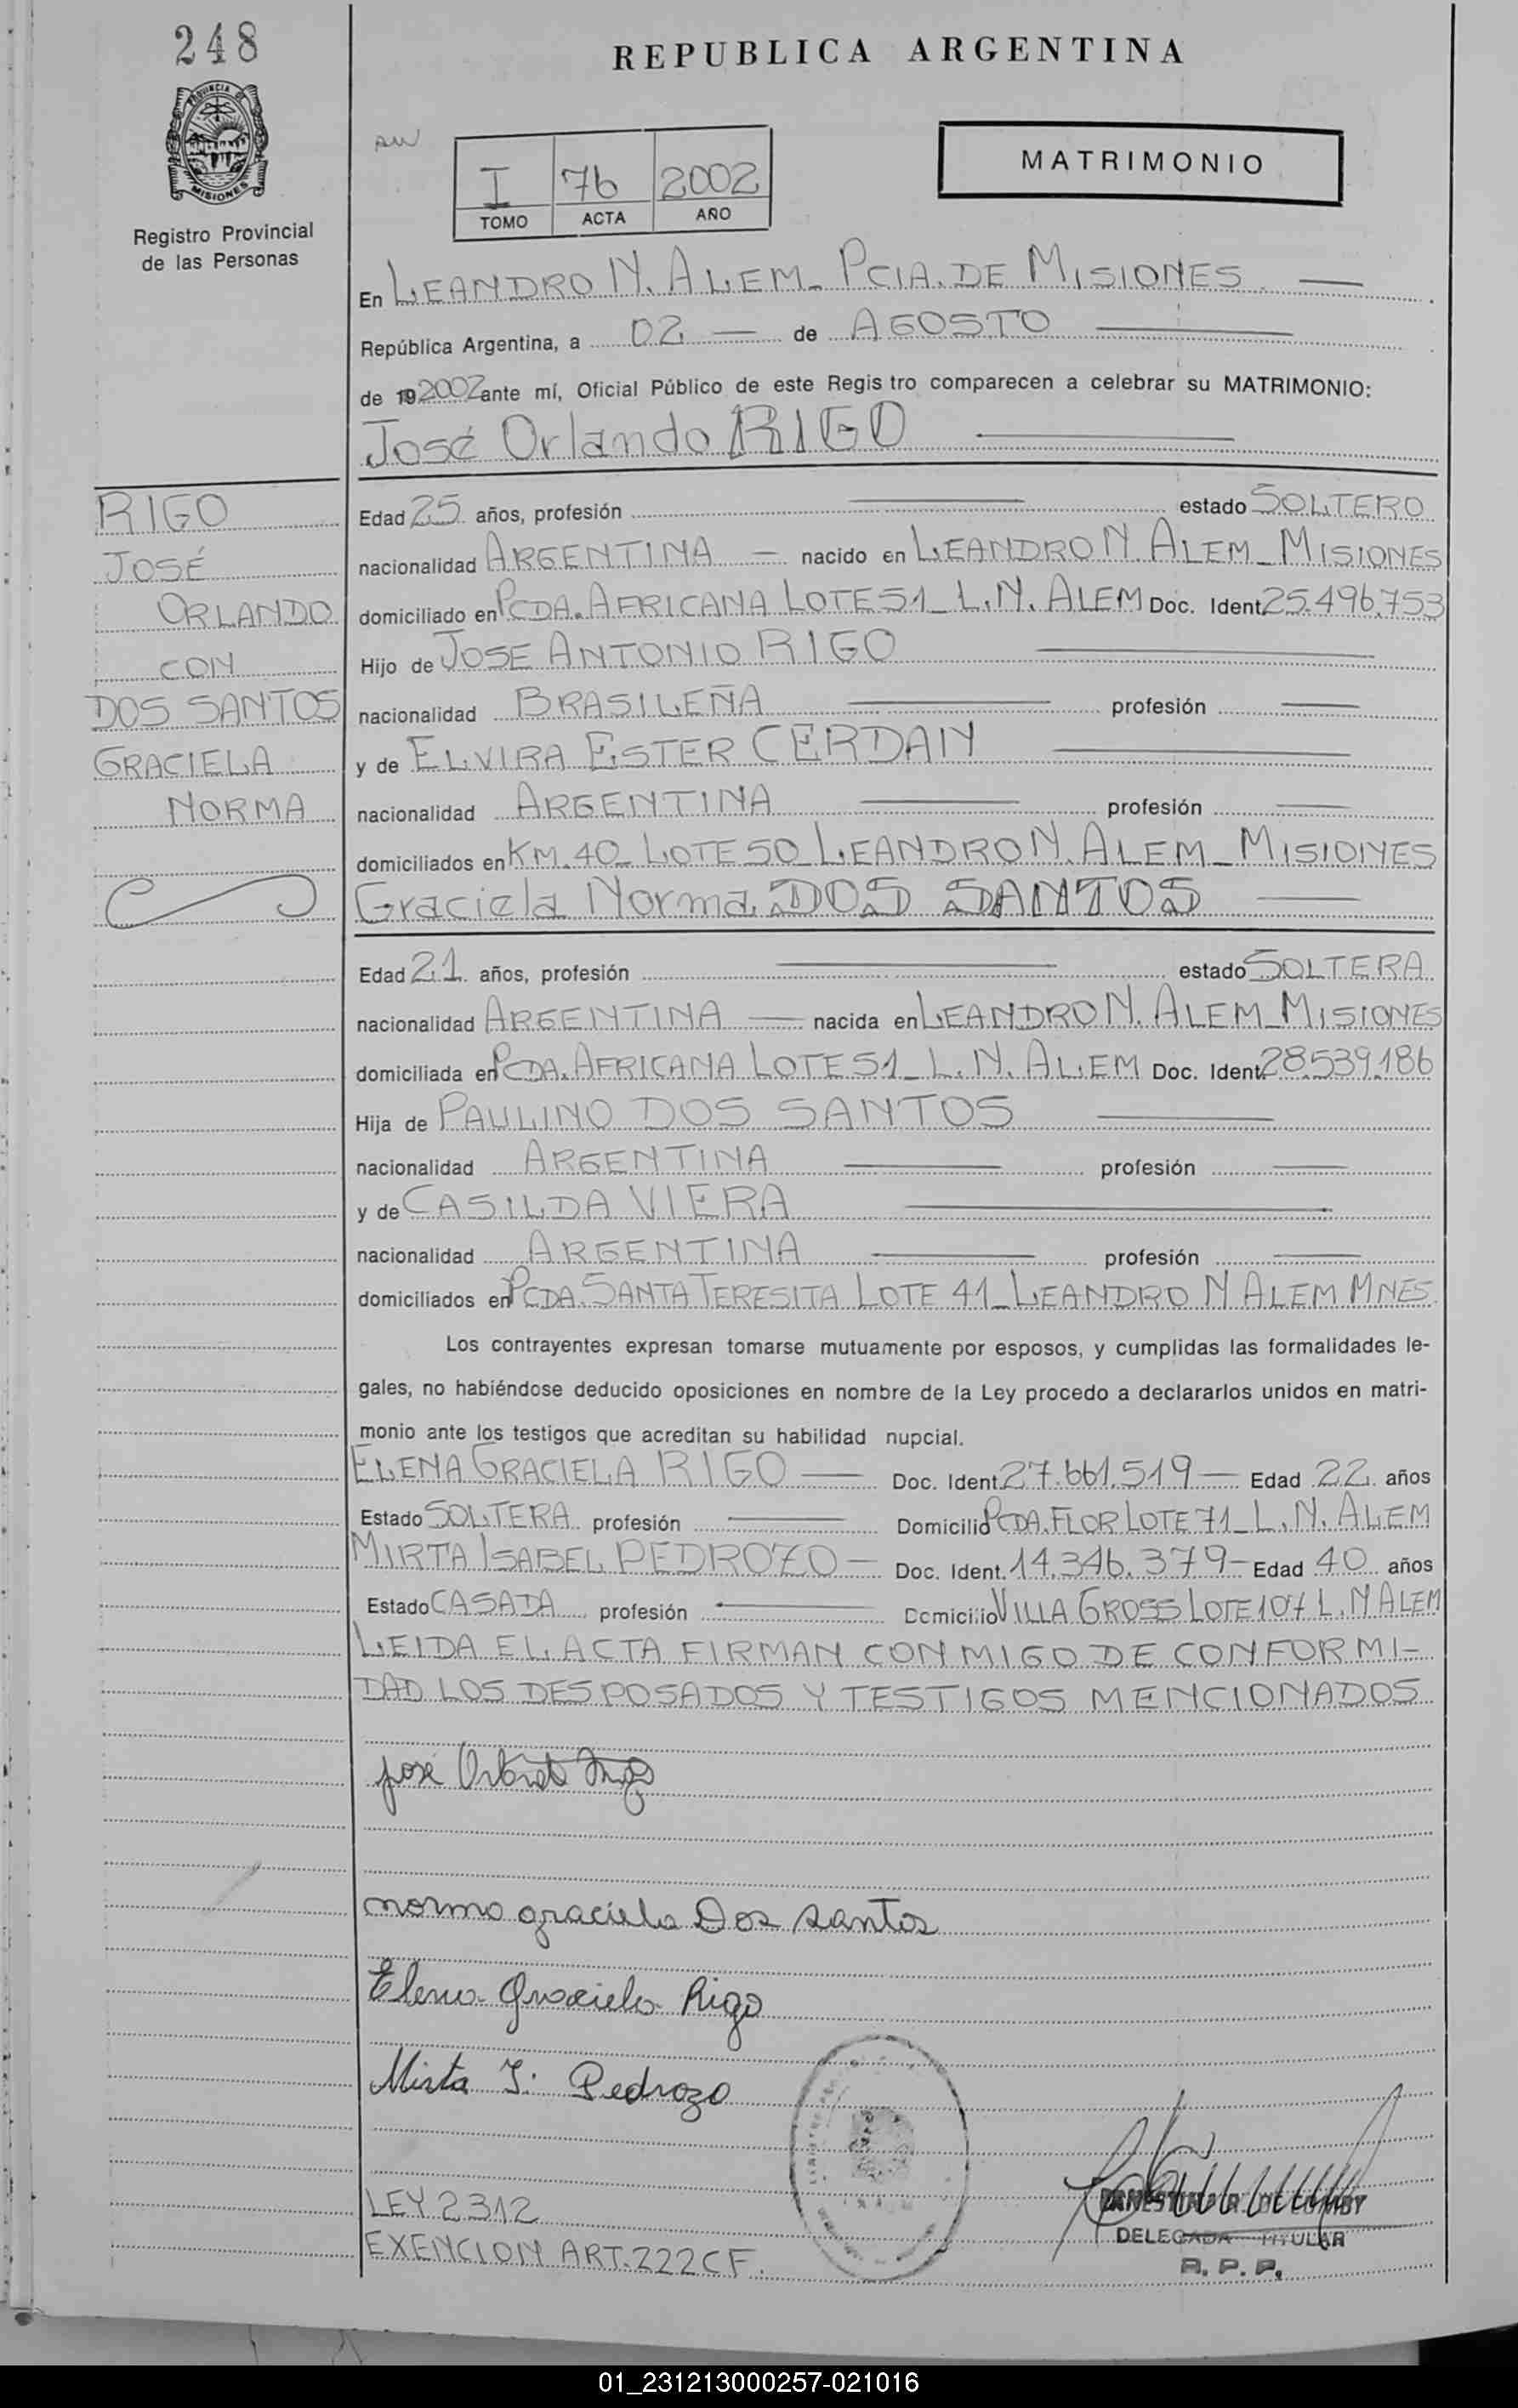 248
PROVINCIA DE
MISIONES
Registro Provincial
de las Personas
REPUBLICA ARGENTINA
MATRIMONIO
I 76 2002
TOMO ACTA AÑO
En LEANDRO N. ALEM_ PCIA. DE MISIONES
República Argentina, a 02 — de AGOSTO
de 19 2002 ante mí, Oficial Público de este Regis tro comparecen a celebrar su MATRIMONIO:
José Orlando RIGO
RIGO
JOSÉ
ORLANDO
CON
DOS SANTOS
GRACIELA
NORMA
Edad 25 años, profesión — estado SOLTERO
nacionalidad ARGENTINA — nacido en LEANDRO N. ALEM_MISIONES
domiciliado en PCDA. AFRICANA LOTE 51_ L.N. ALEM Doc. Ident. 25.496.753
Hijo de JOSE ANTONIO RIGO
nacionalidad BRASILEÑA — profesión —
y de ELVIRA ESTER CERDAN
nacionalidad ARGENTINA — profesión —
domiciliados en KM. 40_ LOTE 50 LEANDRO N. ALEM_ MISIONES
Graciela Norma DOS SANTOS —
Edad 21 años, profesión — estado SOLTERA
nacionalidad ARGENTINA — nacida en LEANDRO N. ALEM_MISIONES
domiciliada en PCDA. AFRICANA LOTE 51_ L.N. ALEM Doc. Ident. 28.539.186
Hija de PAULINO DOS SANTOS —
nacionalidad ARGENTINA — profesión —
y de CASILDA VIERA —
nacionalidad ARGENTINA — profesión —
domiciliados en PCDA. SANTA TERESITA LOTE 41_LEANDRO N ALEM MNES.
Los contrayentes expresan tomarse mutuamente por esposos, y cumplidas las formalidades le-
gales, no habiéndose deducido oposiciones en nombre de la Ley procedo a declararlos unidos en matri-
monio ante los testigos que acreditan su habilidad nupcial.
ELENA GRACIELA RIGO — Doc. Ident. 27.661.519 — Edad 22 años
Estado SOLTERA profesión — Domicilio PCDA. FLOR LOTE 71_ L.N. ALEM
MIRTA ISABEL PEDROZO — Doc. Ident. 14.346.379 — Edad 40 años
Estado CASADA profesión — Domicilio VILLA GROSS LOTE 107 L.N ALEM
LEIDA EL ACTA FIRMAN CONMIGO DE CONFORMI-
DAD LOS DESPOSADOS Y TESTIGOS MENCIONADOS
José Orlando Rigo
norma graciela Dos santos
Elena Graciela Rigo
Mirta I. Pedrozo
LEY 2312
EXENCION ART. 222 CF.
DELEGADA TITULAR
R. P. P.
01_231213000257-021016